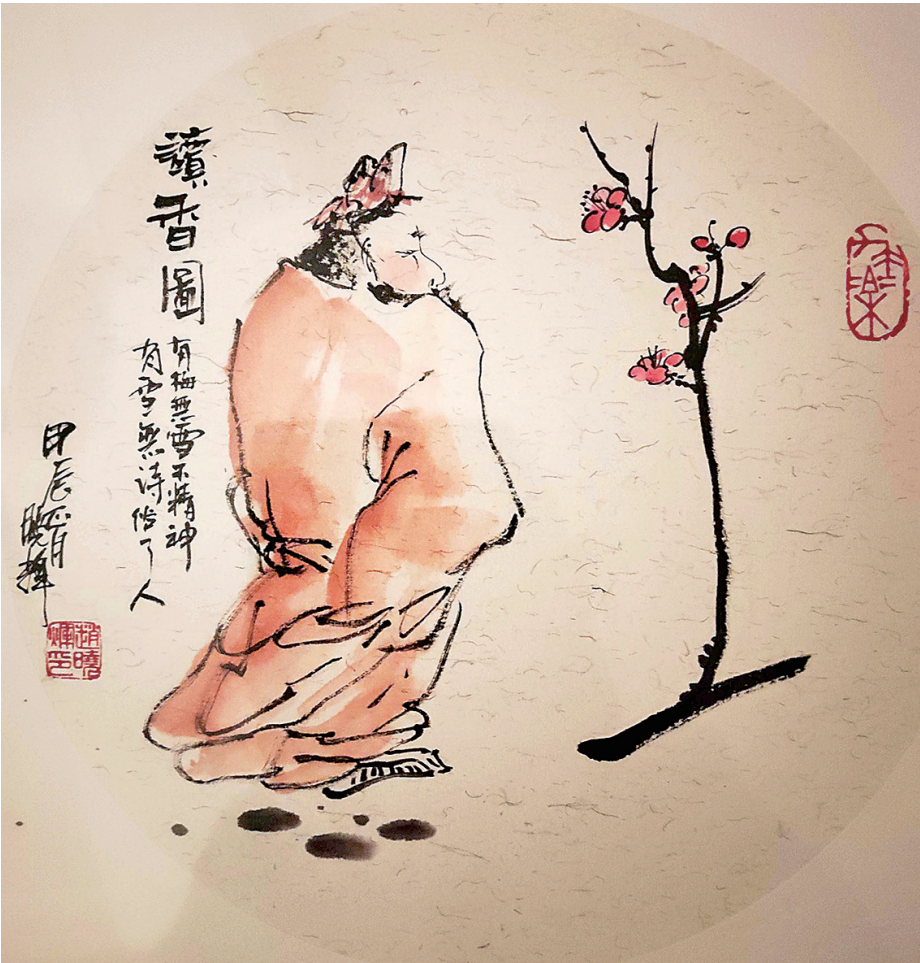 讀香圖
有梅無雪不精神
有雪無诗俗了人
甲辰正月
曉輝
趙曉輝印